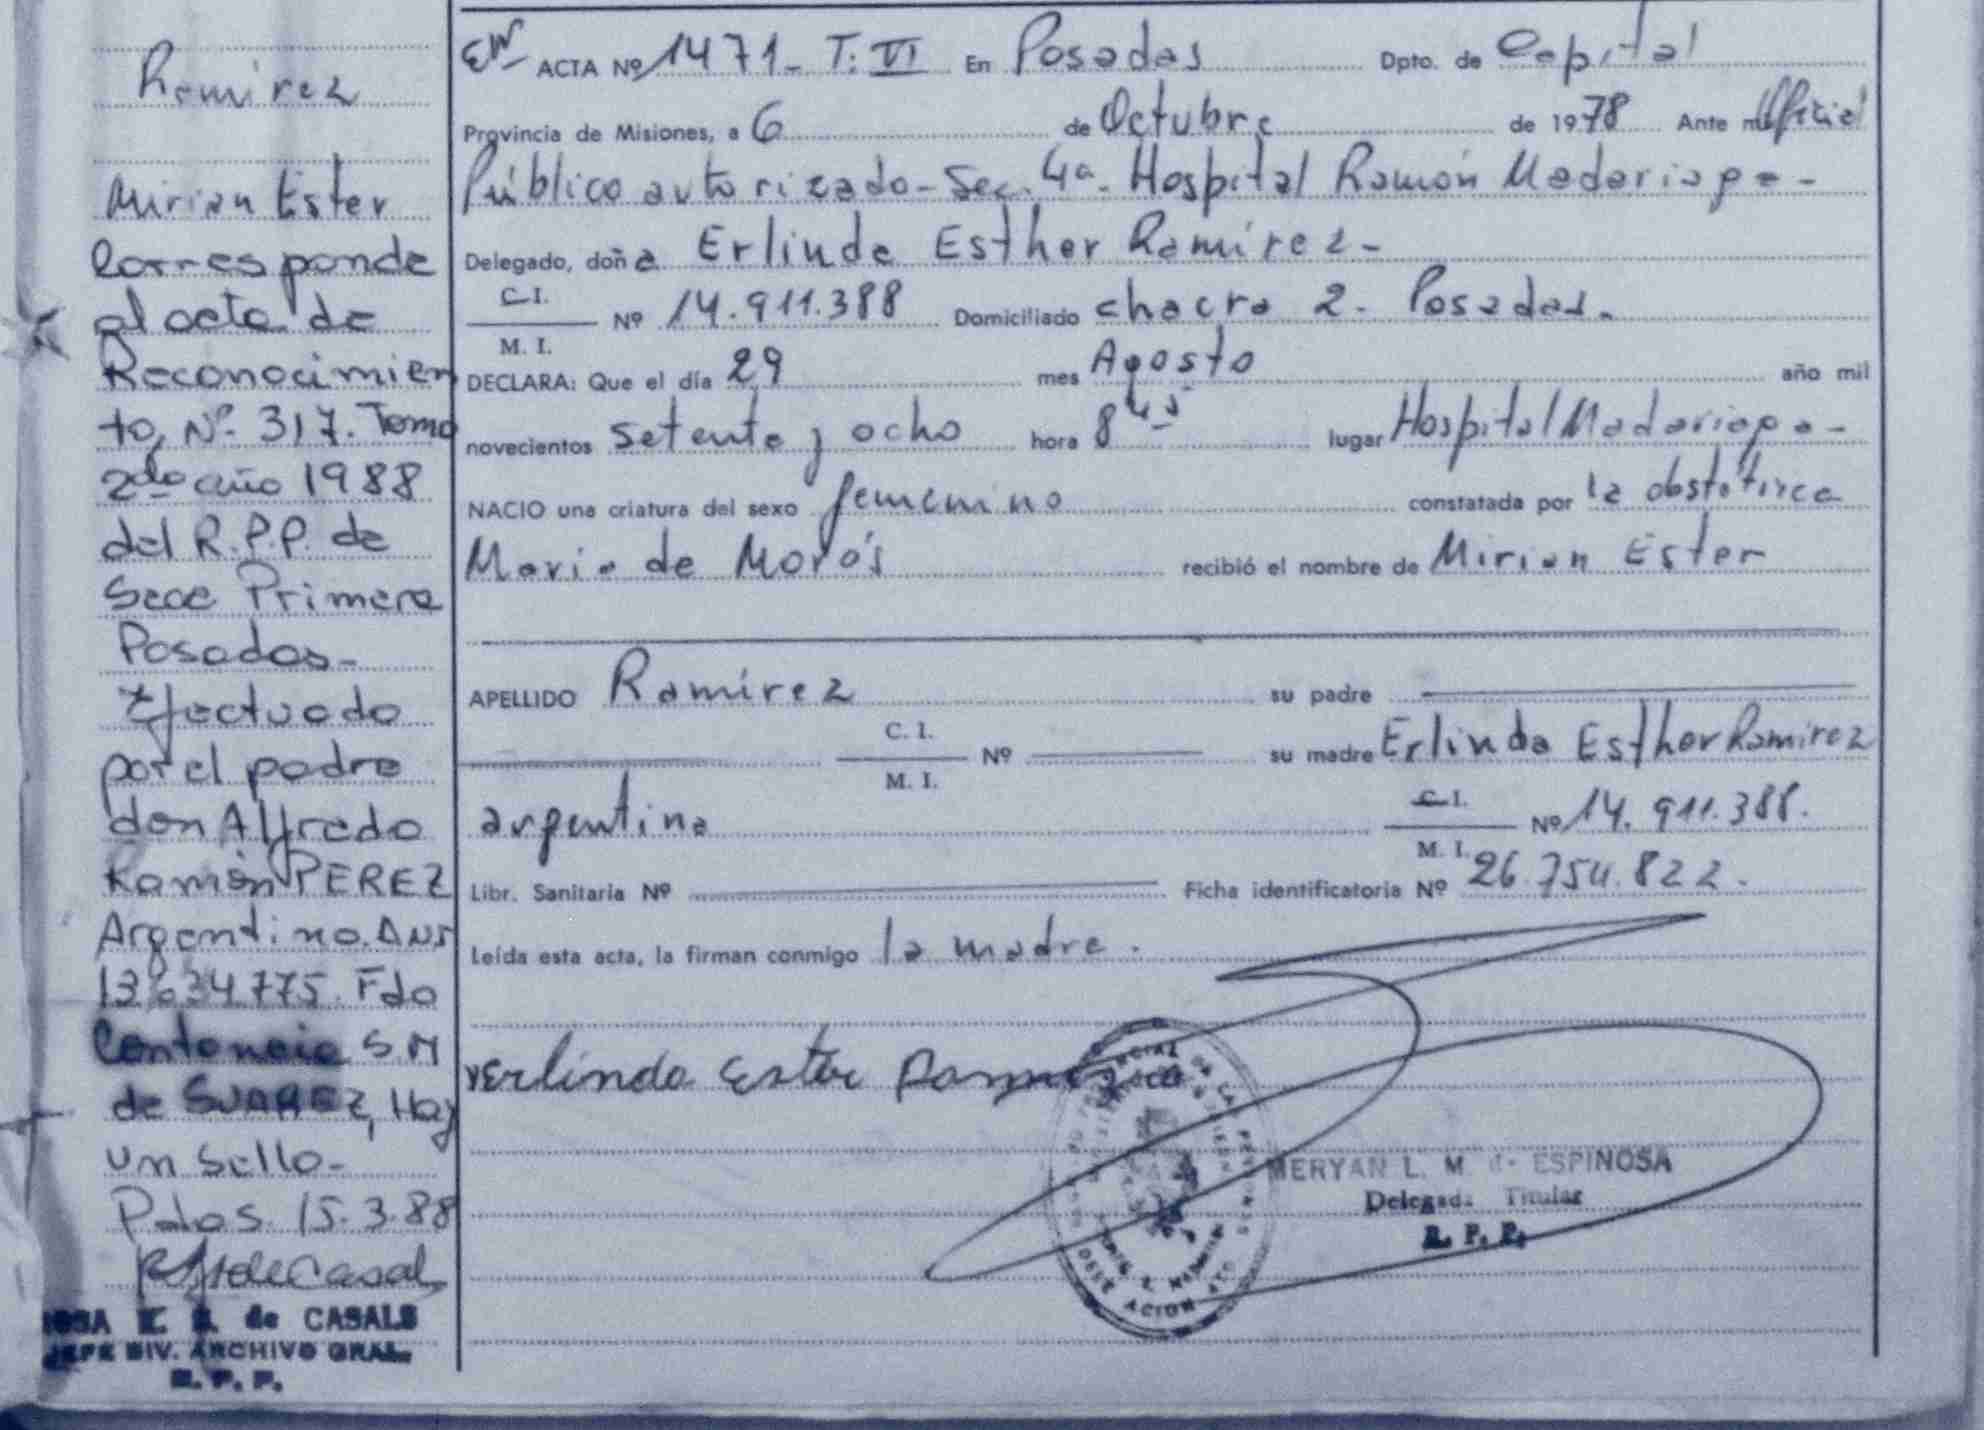 Ramirez
Mirian Ester
Corresponde
al acta de
Reconocimien
to, Nº 317. Tomo
2do año 1988
del R.P.P. de
Secc Primera
Posadas-
Efectuado
por el padre
don Alfredo
Ramón PEREZ
Argentino. DNI
13634775. Fdo
S M
de SUAREZ, Hay
un Sello-
Pdas. 15.3.88
E. B. de CASALS
JEFE DIV. ARCHIVO GRAL.
R. P. P.
ACTA Nº 1471- T: VI En Posadas Dpto. de Capital
Provincia de Misiones, a 6 de Octubre de 1978 Ante mi Oficial
Público autorizado- Sec. 4a. Hospital Ramón Madariaga-
Delegado, doña Erlinda Esther Ramírez-
C.I.
M. I. Nº 14.911.388 Domiciliado chacra 2- Posadas.
DECLARA: Que el día 29 mes Agosto año mil
novecientos setenta y ocho hora 8 45 lugar Hospital Madariaga-
NACIO una criatura del sexo femenino constatada por la obstétirca
Maria de Morós recibió el nombre de Mirian Ester
APELLIDO Ramírez su padre
C. I.
M. I. Nº su madre Erlinda Esther Ramirez
argentina C.I.
M. I. Nº 14.911.388.
Libr. Sanitaria Nº Ficha identificatoria Nº 26.754.822.
Leída esta acta, la firman conmigo la madre.
Erlinda Ester Ramirez
MERYAN L. M. de ESPINOSA
Delegada Titular
R. P. P.